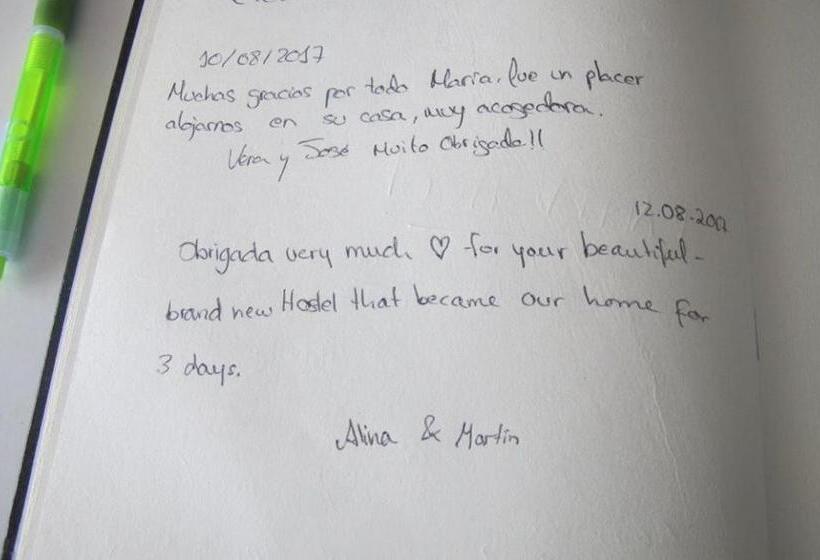 10/08/2017
Muchas gracias por todo María. Fue un placer
alojarnos en su casa, muy acogedora.
Vera y José Muito Obrigado!!
12.08.2017
Obrigada very much ♡ for your beautiful-
brand new Hostel that became our home for
3 days.
Alina & Martin